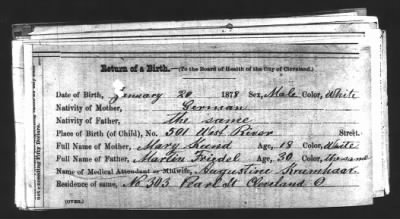 Return of a Birth.—(To the Board of Health of the City of Cleveland.)
Date of Birth, January 20 1878 Sex, Male Color, White
Nativity of Mother, German
Nativity of Father, The same
Place of Birth (of Child), No. 591 West River Street.
Full Name of Mother, Mary Kund Age, 18 Color, White
Full Name of Father, Martin Friedel Age, 30 Color, the same
Name of Medical Attendant or Midwife, Augustine Krumhaar
Residence of same, No 303 Pearl St Cleveland O
(OVER.)
not exceeding Fifty Dollars.